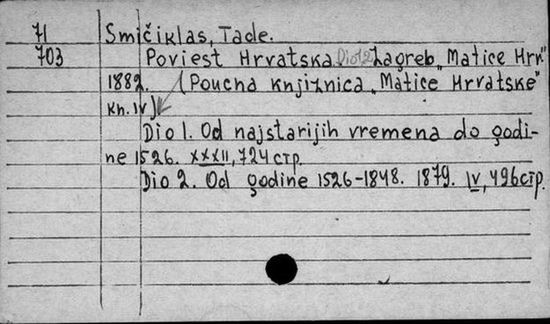 71 Smičiklas, Tade.
703 Poviest Hrvatska Dio 1 2 Zagreb „Matice Hrv"
1882. (Poucna knjiznica „Matice Hrvatske"
kn. IV)
Dio 1. Od najstarijih vremena do godi-
ne 1526. XXXII, 724 стр.
Dio 2. Od godine 1526-1848. 1879. IV, 496 стр.